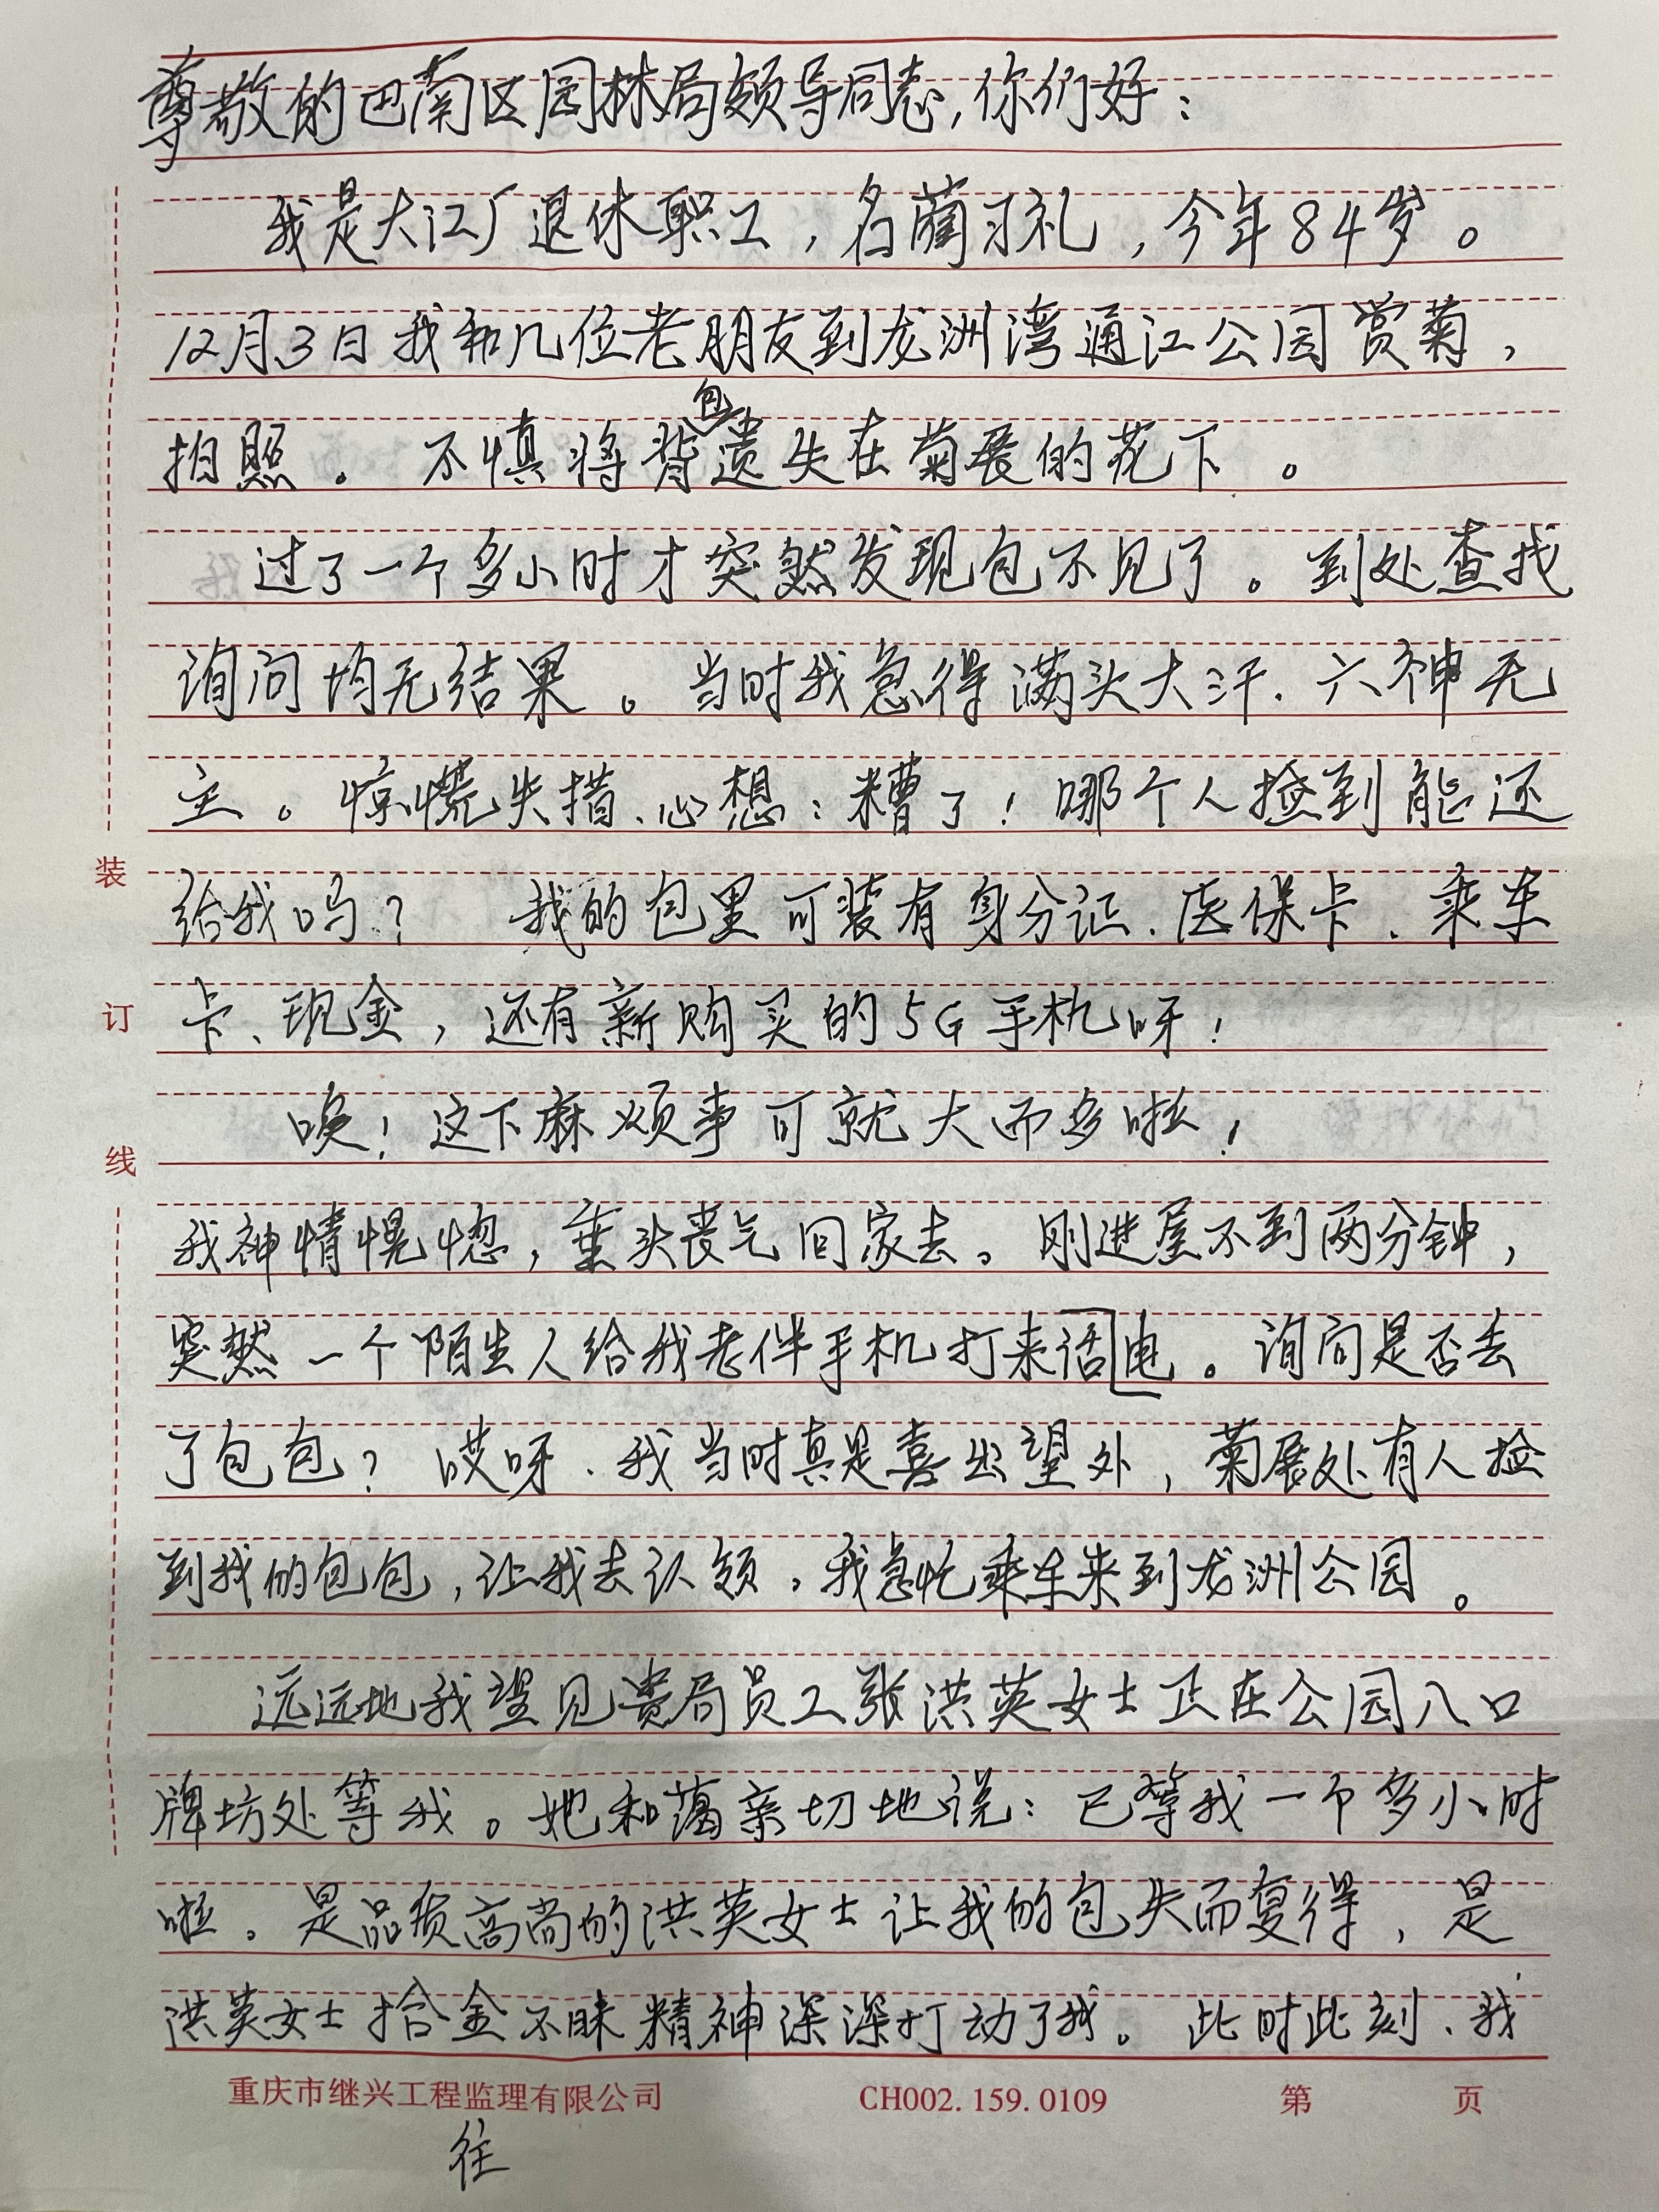 尊敬的巴南区园林局领导同志,你们好:
我是大江厂退休职工,名蔺习礼,今年84岁。
12月3日我和几位老朋友到龙洲湾通江公园赏菊,
拍照。不慎将背包遗失在菊展的花下。
过了一个多小时才突然发现包不见了。到处查找
询问均无结果。当时我急得满头大汗.六神无
主。惊慌失措、心想:糟了!哪个人捡到能还
给我吗?我的包里可装有身分证.医保卡、乘车
卡、现金,还有新购买的5G手机呀!
唉!这下麻烦事可就大而多啦!
我神情愰惚,垂头丧气回家去。刚进屋不到两分钟,
突然一个陌生人给我老伴手机打来话电。询问是否丢
了包包?哎呀、我当时真是喜出望外,菊展处有人捡
到我的包包,让我去认领,我急忙乘车来到龙洲公园。
远远地我望见贵局员工张洪英女士正在公园入口
牌坊处等我。她和蔼亲切地说:已等我一个多小时
啦。是品质高尚的洪英女士让我的包失而复得,是
洪英女士拾金不昧精神深深打动了我。此时此刻、我
装
订
线
重庆市继兴工程监理有限公司 CH002.159.0109 第 页
往